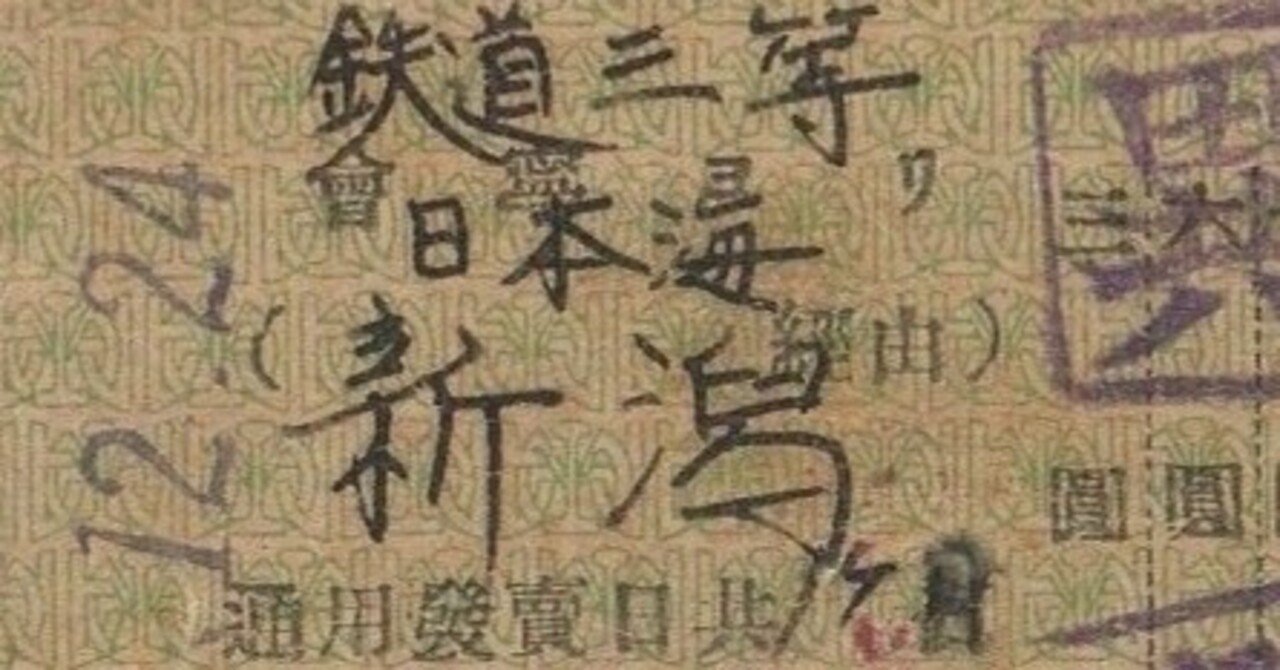 鉄道三等
會寧ヨリ
日本海
(新潟經由)
通用發賣日共 日
12.24
圓 圓